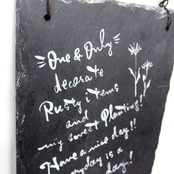 One & Only
decorate
Rusty items
and
my sweet Planting!
Have a nice day!!
everyday is a
day!